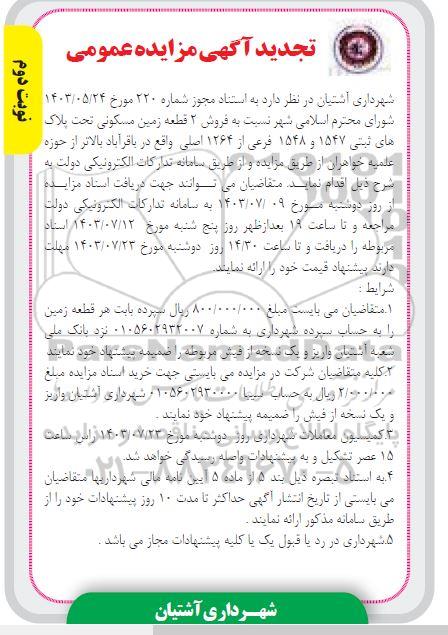 تجدید آگهی مزایده عمومی
نوبت دوم
شهرداری آشتیان در نظر دارد به استناد مجوز شماره ۲۲۰ مورخ ۱۴۰۳/۰۵/۲۴
شورای محترم اسلامی شهر نسبت به فروش ۲ قطعه زمین مسکونی تحت پلاک
های ثبتی ۱۵۴۷ و ۱۵۴۸ فرعی از ۱۲۶۴ اصلی واقع در باقرآباد بالاتر از حوزه
علمیه خواهران از طریق مزایده و از طریق سامانه تدارکات الکترونیکی دولت به
شرح ذیل اقدام نماید. متقاضیان می توانند جهت دریافت اسناد مزایده
از روز دوشنبه مورخ ۰۹ /۱۴۰۳/۰۷ به سامانه تدارکات الکترونیکی دولت
مراجعه و تا ساعت ۱۹ بعدازظهر روز پنج شنبه مورخ ۱۴۰۳/۰۷/۱۲ اسناد
مربوطه را دریافت و تا ساعت ۱۴/۳۰ روز دوشنبه مورخ ۱۴۰۳/۰۷/۲۳ مهلت
دارند پیشنهاد قیمت خود را ارائه نمایند.
شرایط :
۱.متقاضیان می بایست مبلغ ۸۰۰/۰۰۰/۰۰۰ ریال سپرده بابت هر قطعه زمین
را به حساب سپرده شهرداری به شماره ۰۱۰۵۶۰۲۹۳۲۰۰۷ نزد بانک ملی
شعبه آشتیان واریز و یک نسخه از فیش مربوطه را ضمیمه پیشنهاد خود نمایند
۲.کلیه متقاضیان شرکت در مزایده می بایستی جهت خرید اسناد مزایده مبلغ
۲/۰۰۰/۰۰۰ ریال به حساب سیبا ۰۱۰۵۶۰۲۹۳۰۰۰۰ شهرداری آشتیان واریز
و یک نسخه از فیش را ضمیمه پیشنهاد خود نمایند .
۳.کمیسیون معاملات شهرداری روز دوشنبه مورخ ۱۴۰۳/۰۷/۲۳ راس ساعت
۱۵ عصر تشکیل و به پیشنهادات واصله رسیدگی خواهد شد.
۴.به استناد تبصره ذیل بند ۵ از ماده ۵ آیین نامه مالی شهرداریها متقاضیان
می بایستی از تاریخ انتشار آگهی حداکثر تا مدت ۱۰ روز پیشنهادات خود را از
طریق سامانه مذکور ارائه نمایند .
۵.شهرداری در رد یا قبول یک یا کلیه پیشنهادات مجاز می باشد .
شهرداری آشتیان